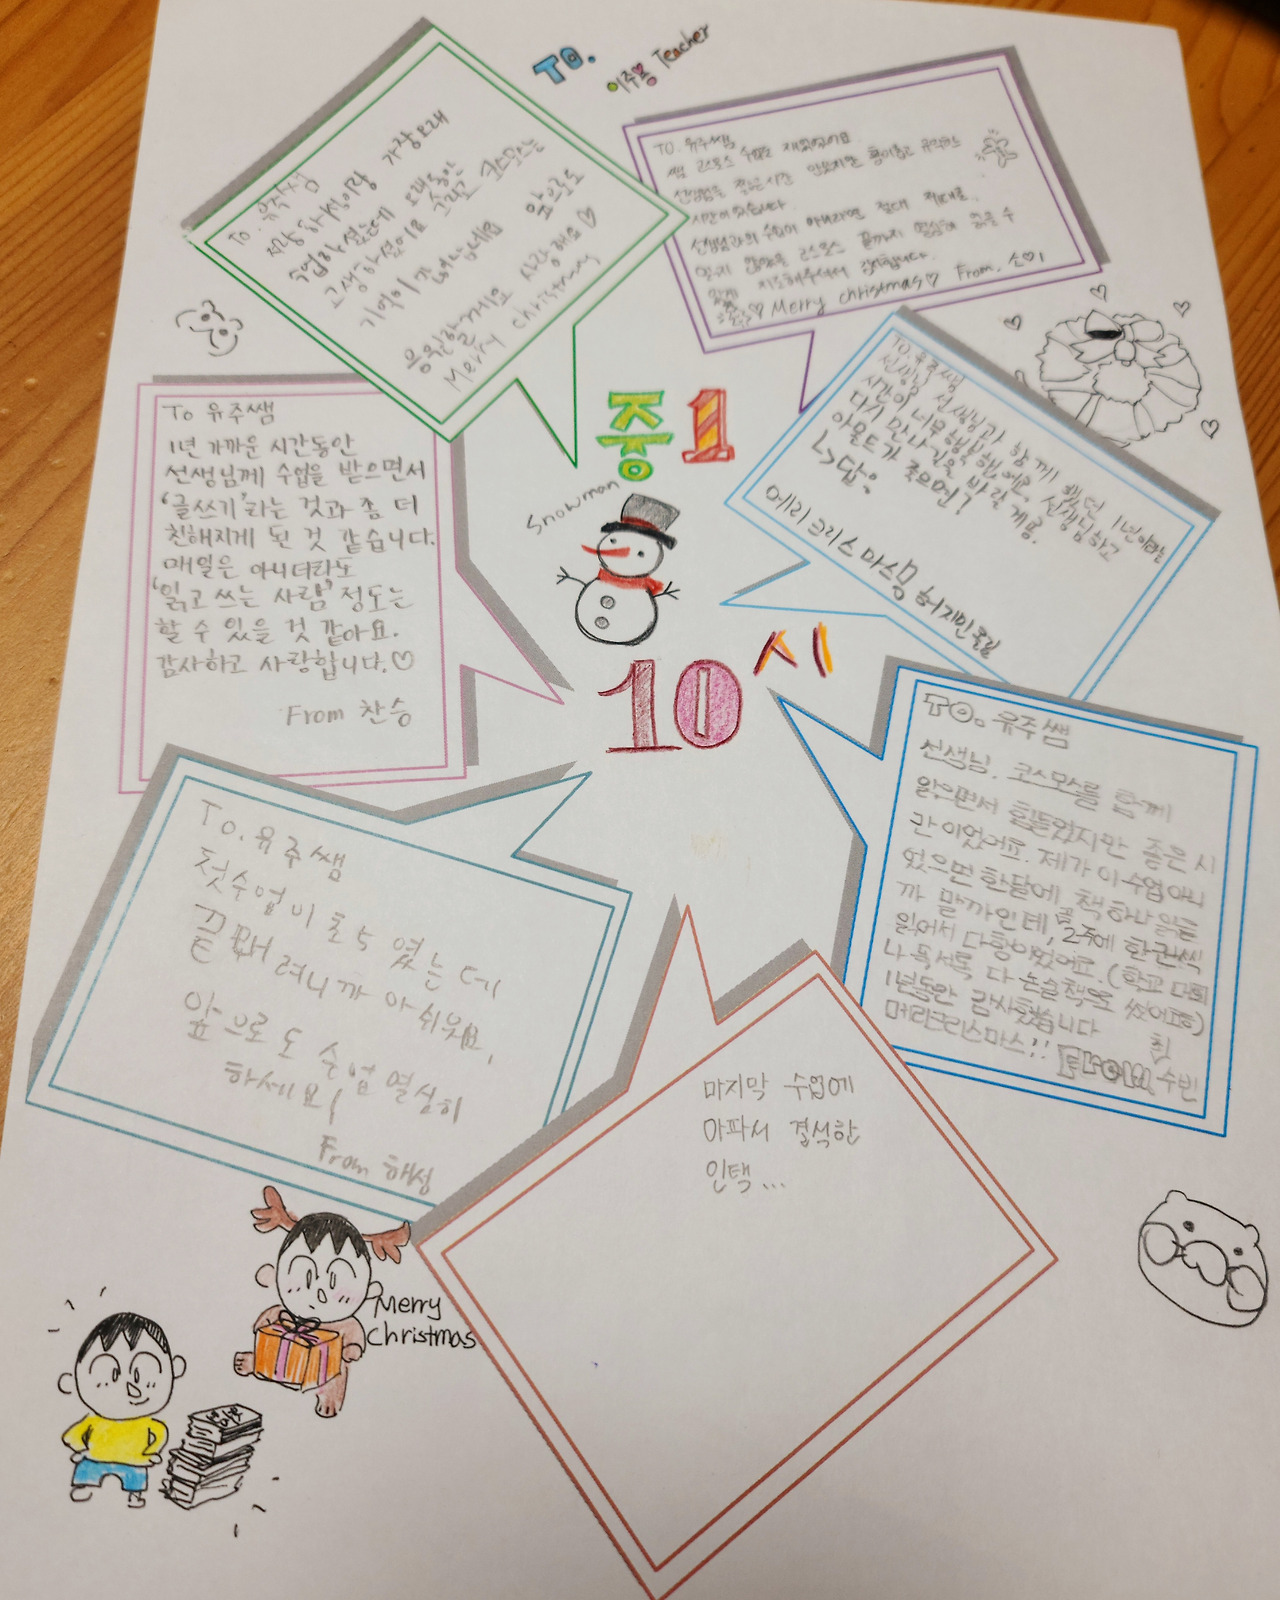 TO.
이주용 Teacher
To. 유주쌤
저랑 하성이랑 가장오래
수업하셨는데 오래동안
고생하셨어요 그리고 코스모스는
기억이 않나네요 앞으로도
응원할게요 사랑해요♡
Merry christmas
TO. 유주쌤
쌤 코스모스 수업도 재밌었어요.
시간이었습니다.
선생님과의 수업이 아니라면 절대 제대로
읽지 않았을 코스모스 끝까지 열심히 읽을 수
있게 지도해주셔서 감사합니다.
♡ Merry christmas♡ From. 소♡1
TO. 유주쌤
선생님 선생님과 함께 했던 1년이라는
시간이 너무 행복했어요. 선생님하고
다시 만나길을 바랄게용.
아몬드가 죽으면!
↳답:
메리크리스마스 허지민올림
중1
Snowman
10시
To 유주쌤
1년 가까운 시간동안
선생님께 수업을 받으면서
'글쓰기'라는 것과 좀 더
친해지게 된 것 같습니다.
매일은 아니더라도
'읽고 쓰는 사람' 정도는
할 수 있을 것 같아요.
감사하고 사랑합니다.♡
From 찬승
TO. 유주쌤
선생님. 코스모스를 함께
읽으면서 힘들었지만 좋은 시
간이었어요. 제가 이수업아니
었으면 한달에 책 하나 읽을
까 말까인데, 2주에 한권씩
읽어서 다행이었어요. (학교 대회
나 독서록 다 논술책으로 썼어요ㅎ)
1년동안 감사했습니다
메리크리스마스!! From 최수빈
To. 유주쌤
첫수업이 초5 였는데
끝내려니까 아쉬워요.
앞으로도 수업 열심히
하세요!
From 해성
마지막 수업에
아파서 결석한
인택...
Merry
Christmas